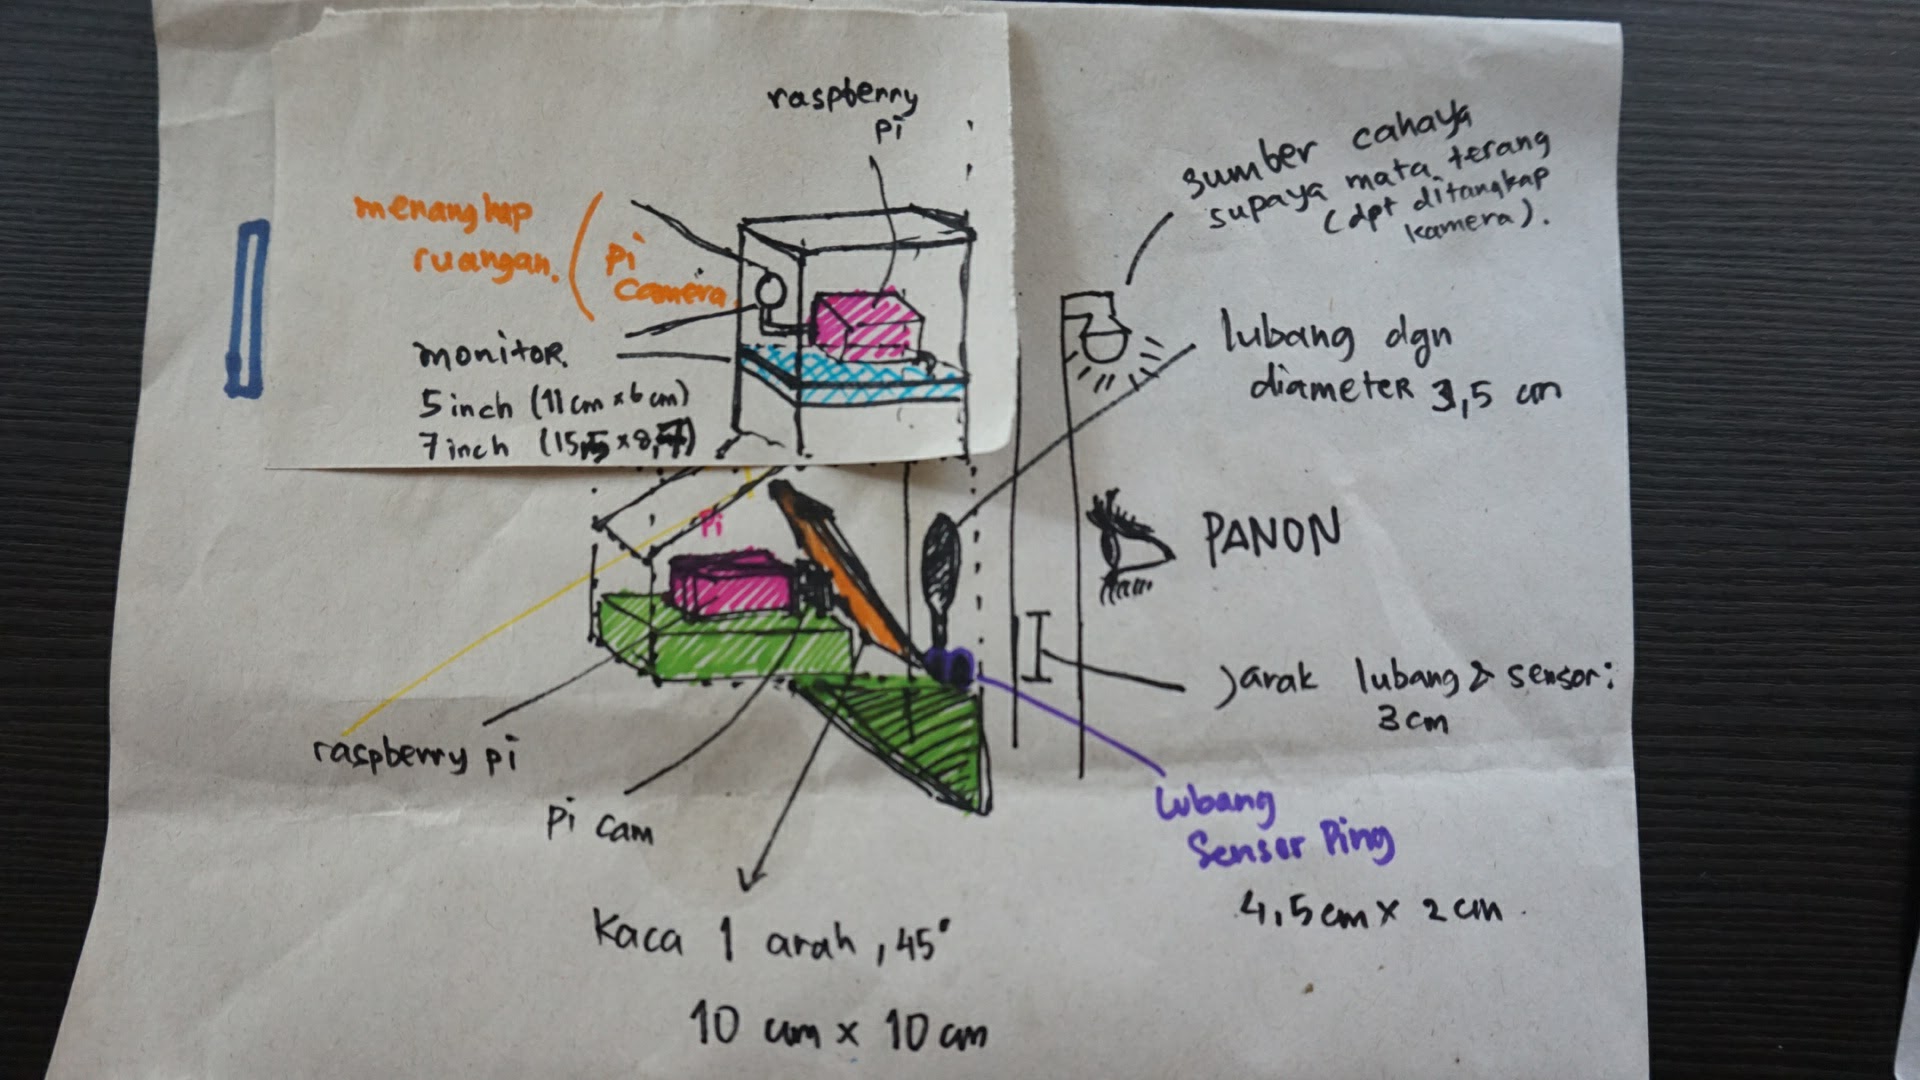 raspberry
pi
menangkap
ruangan.
pi
camera.
monitor.
5 inch (11 cm x 6 cm)
7 inch
sumber cahaya
supaya mata terang
(dpt ditangkap
kamera).
lubang dgn
diameter 3,5 cm
Pi
PANON
jarak lubang & sensor:
3 cm
raspberry pi
pi cam
lubang
Sensor Ping
4,5 cm x 2 cm
Kaca 1 arah, 45°
10 cm x 10 cm